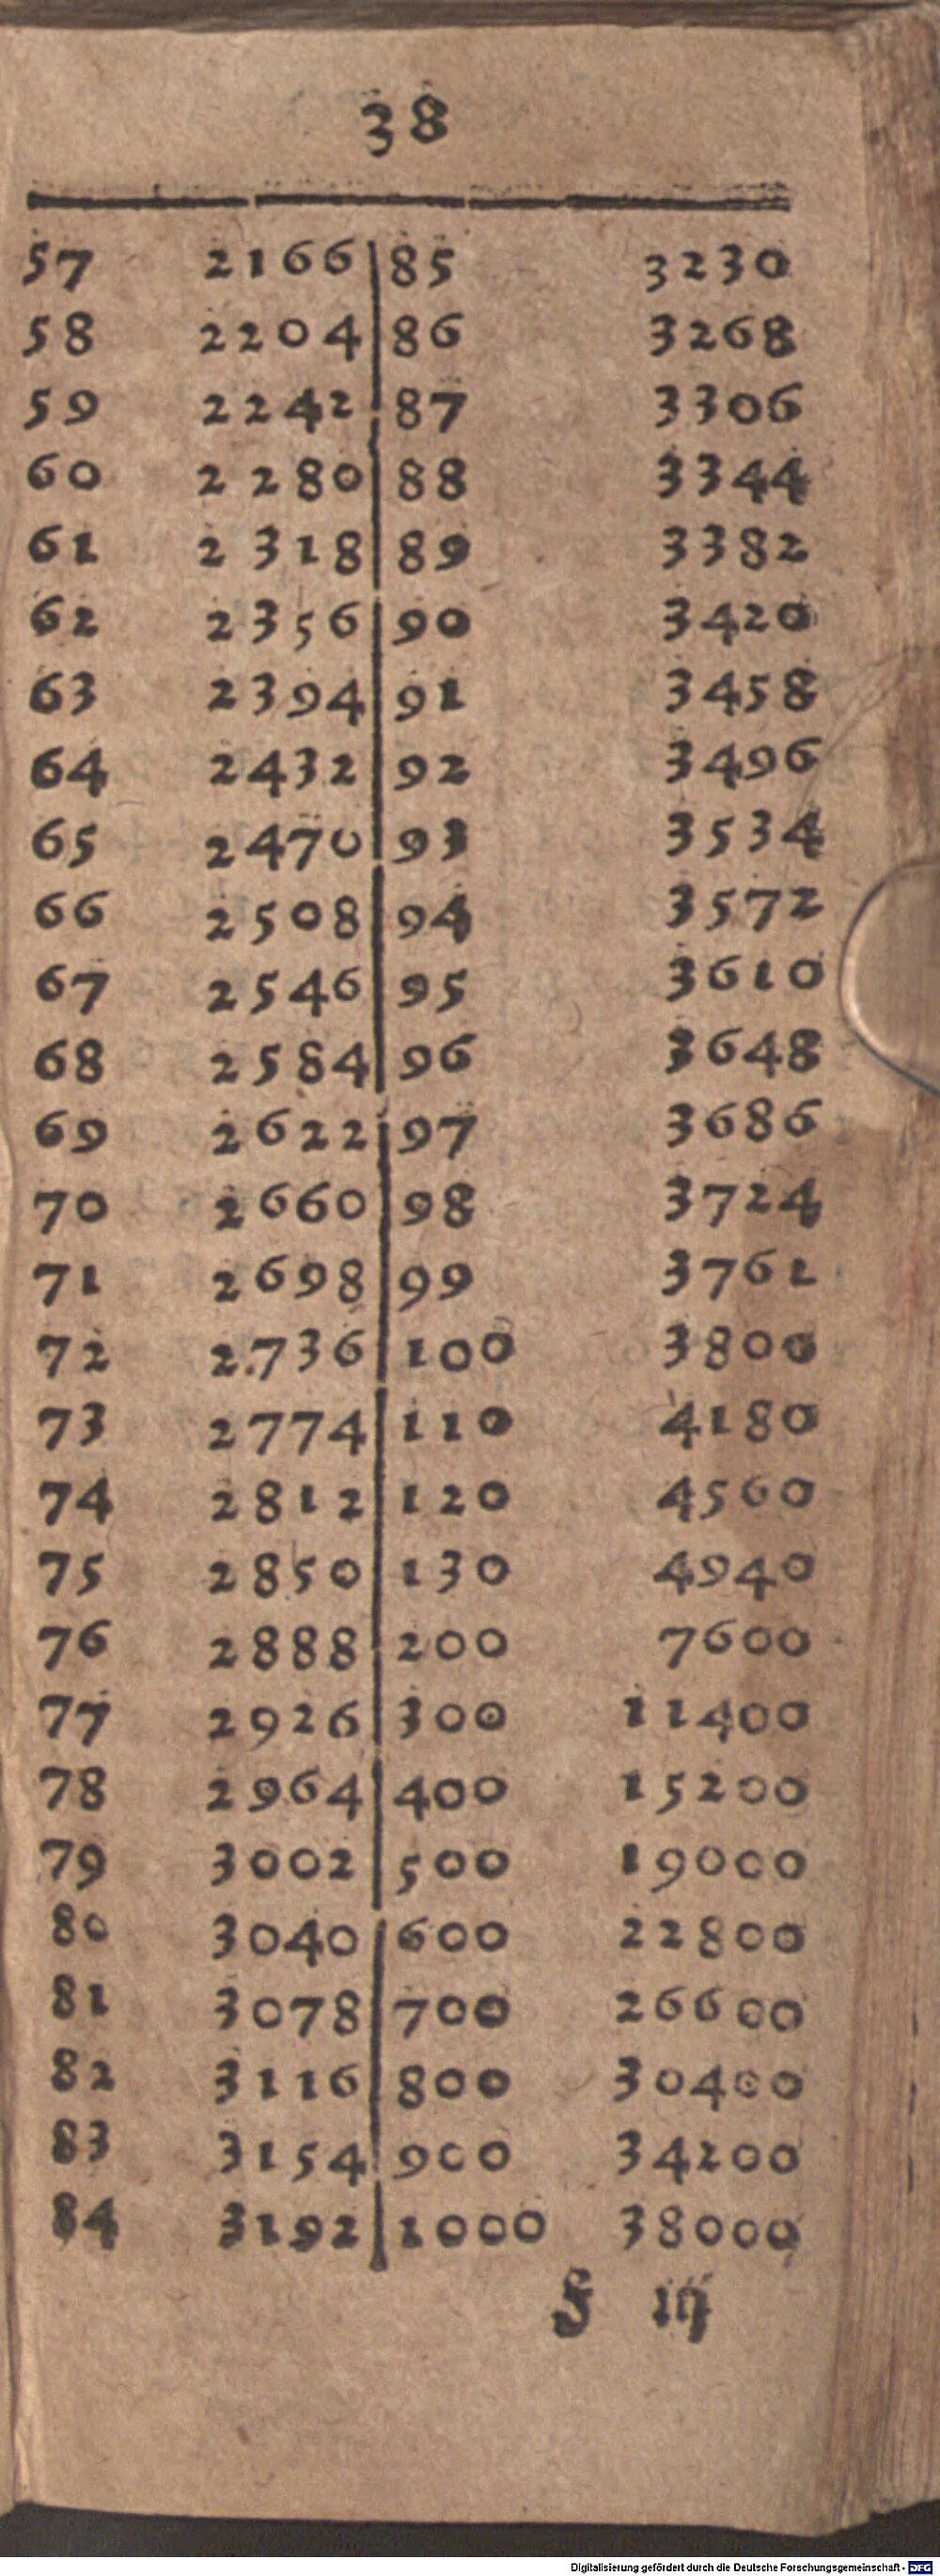 38
57 2166 85 3230
58 2204 86 3268
59 2242 87 3306
60 2280 88 3344
61 2318 89 3382
62 2356 90 3420
63 2394 91 3458
64 2432 92 3496
65 2470 93 3534
66 2508 94 3572
67 2546 95 3610
68 2584 96 3648
69 2622 97 3686
70 2660 98 3724
71 2698 99 3761
72 2736 100 3800
73 2774 110 4180
74 2812 120 4560
75 2850 130 4940
76 2888 200 7600
77 2926 300 11400
78 2964 400 15200
79 3002 500 19000
80 3040 600 22800
81 3078 700 26600
82 3116 800 30400
83 3154 900 34200
84 3192 1000 38000
F iij
Digitalisierung gefördert durch die Deutsche Forschungsgemeinschaft - DFG